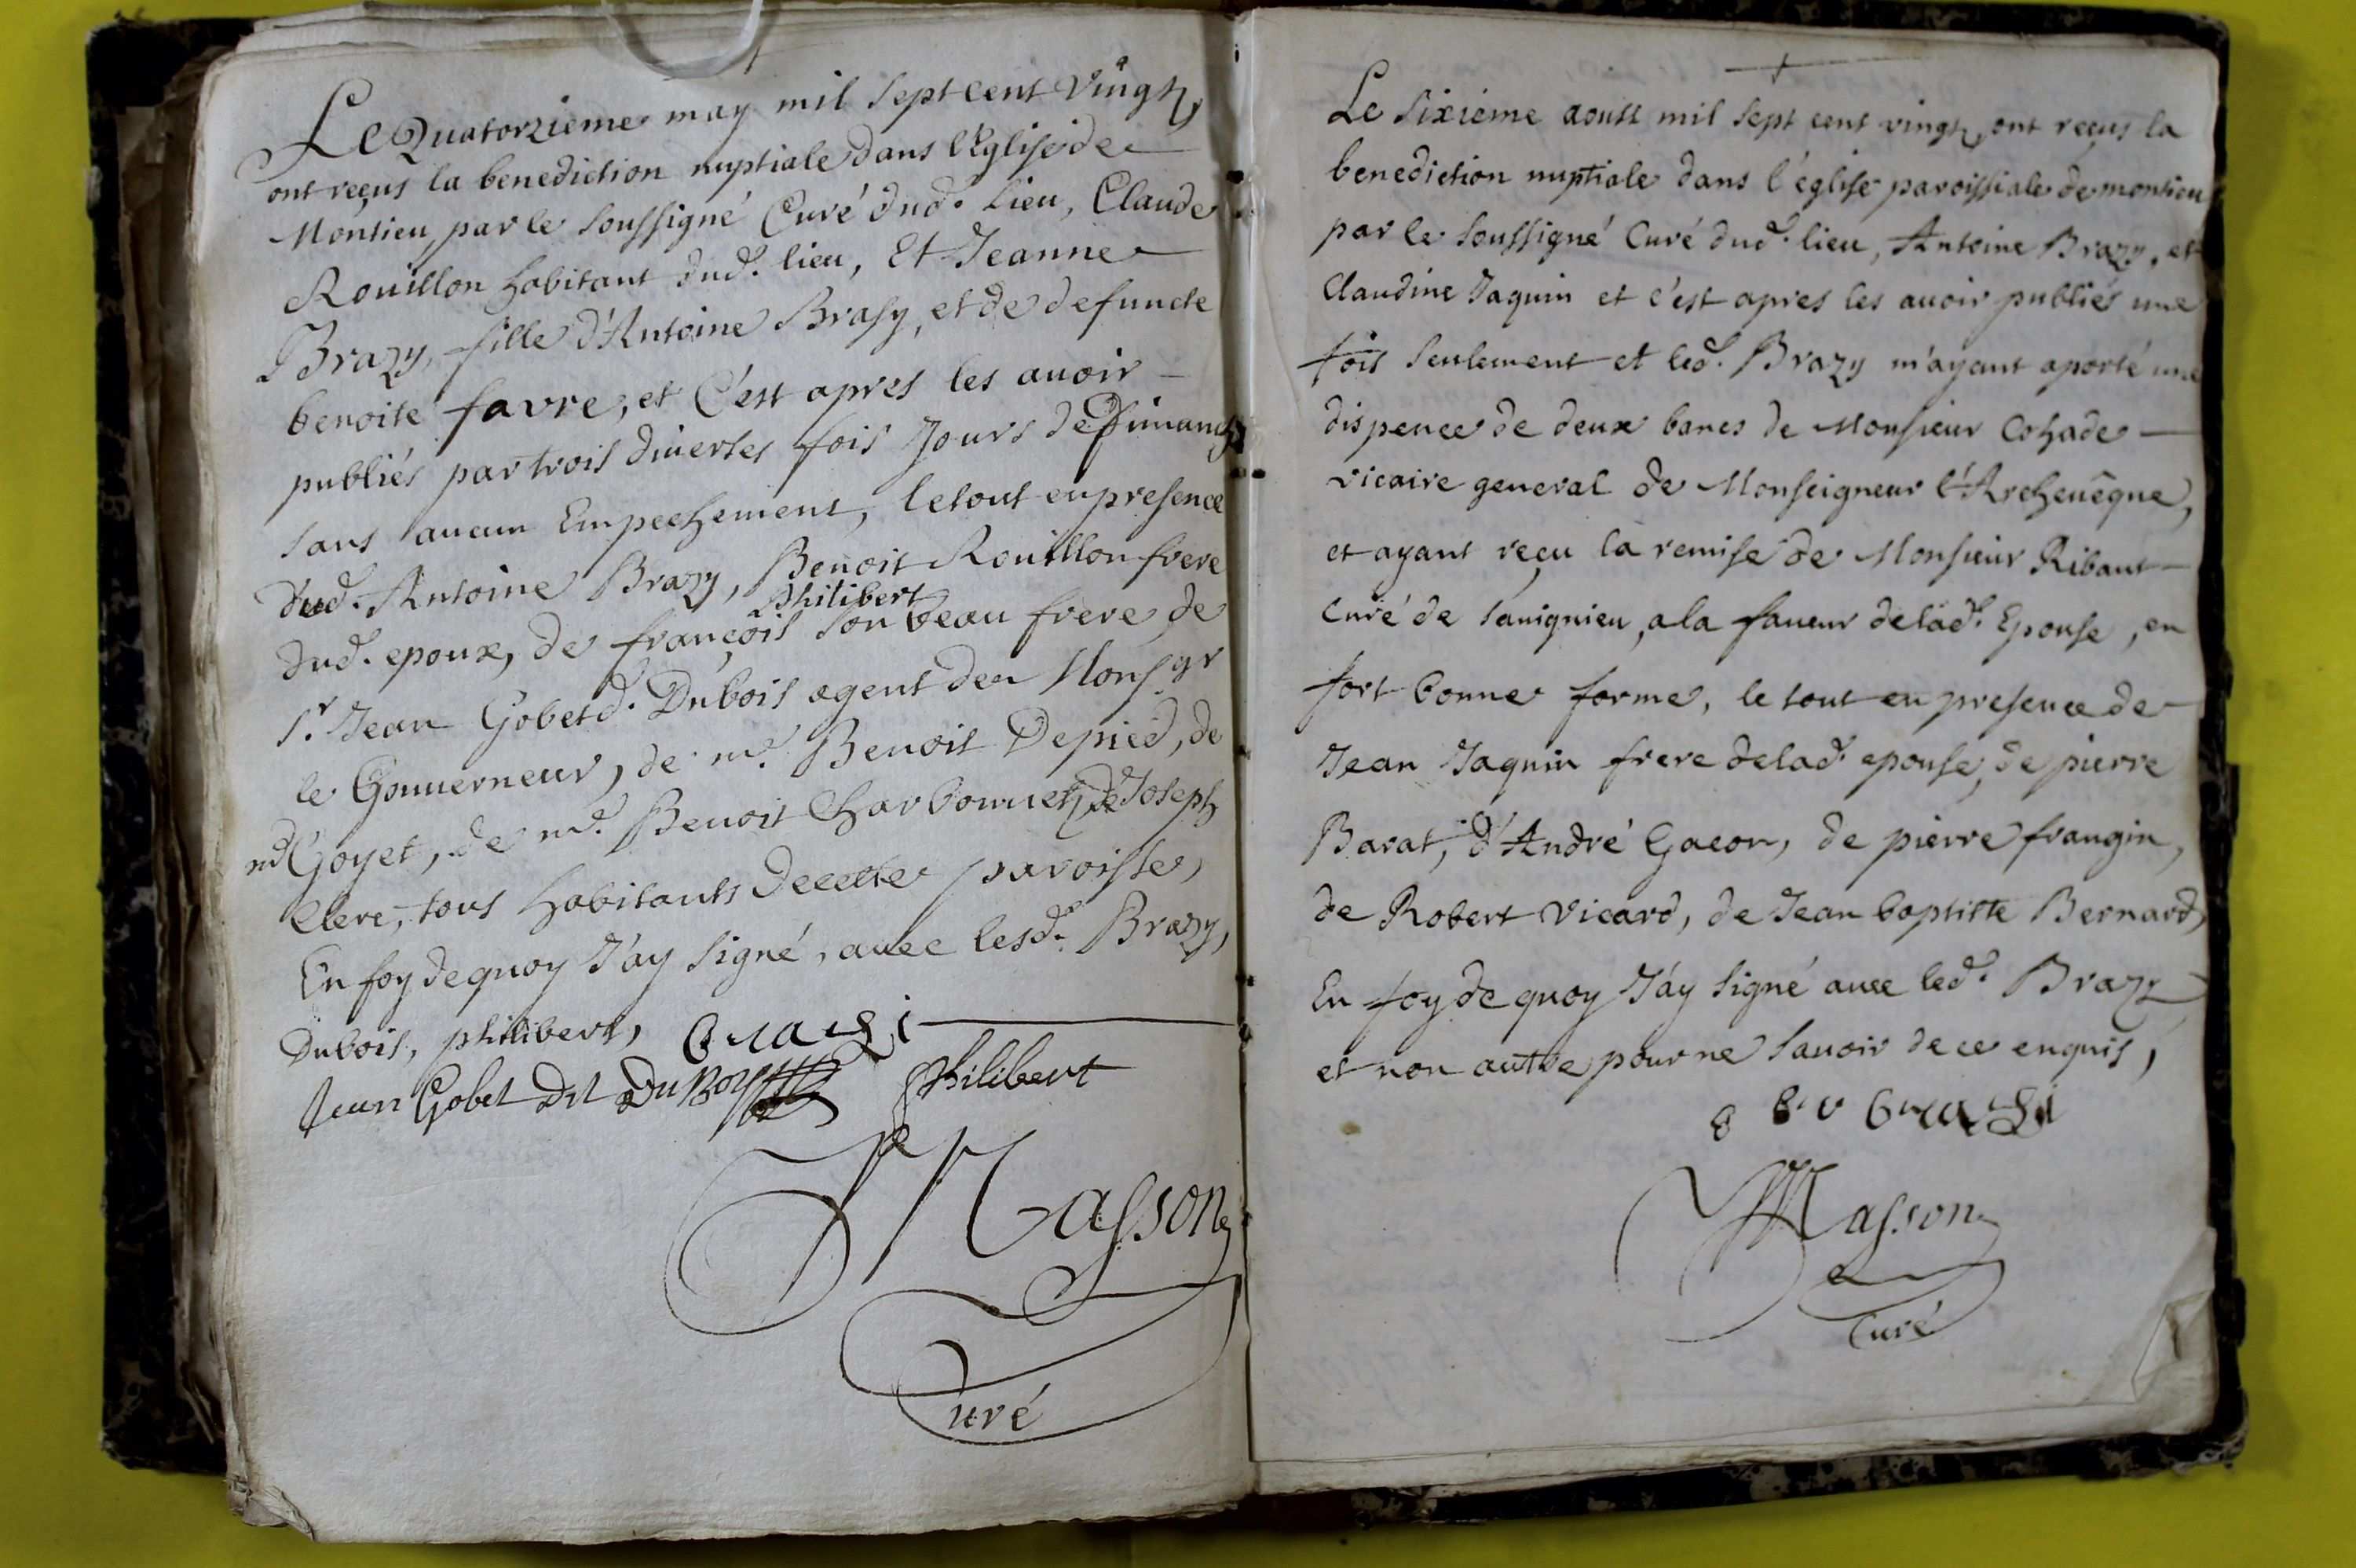 Le Quatorzieme may mil sept cent vingt,
ont reçus la benediction nuptiale dans l'Eglise de
Monsieu, par le soussigné Curé dud. lieu, Claude
Rouillon habitant dud. lieu, Et Jeanne
Brazy, fille d'Antoine Brasy, et de defuncte
benoite favre, et C'est apres les auoir
publiés par trois diuerses fois Jours de Dimanche
sans aucun Empechement, le tout en presence
dud. Antoine Brazy, Benoit Rouillon frere
Philibert
dud. epoux, de françois son beau frere, de
Sr. Jean Gobet d. Dubois agent de Monsgr
le Gouuerneur, de me. Benoit Depied, de
Goyet, de me. Benoit Charbonnet, de Joseph
Clere, tous habitants de cette paroisse,
En foy de quoy J'ay signé, auec lesd. Brazy,
Dubois, philibert,
Jean Gobet Dit DuBois Philibert
Masson
Curé
Le sixiéme aoust mil sept cent vingt, ont reçus la
benediction nuptiale dans l'église paroissiale de monsieu
par le soussigné Curé dud. lieu, Antoine Brazy, et
Claudine Jaquin et c'est apres les auoir publiés une
fois seulement et led. Brazy m'ayant aporté une
dispence de deux bancs de Monsieur Cohade
vicaire general de Monseigneur l'Archeuêque,
et ayant reçu la remise de Monsieur Ribaut
Curé de sauignieu, a la faueur de lad. Epouse, en
fort bonne forme, le tout en presence de
Jean Jaquin frere de lad. epouse, de pierre
Barat, d'André Gacon, de pierre frangin,
de Robert Vicard, de Jean baptiste Bernard,
En foy de quoy J'ay signé auec led. Brazy
et non autre pour ne sauoir de ce enquis,
Masson
Curé